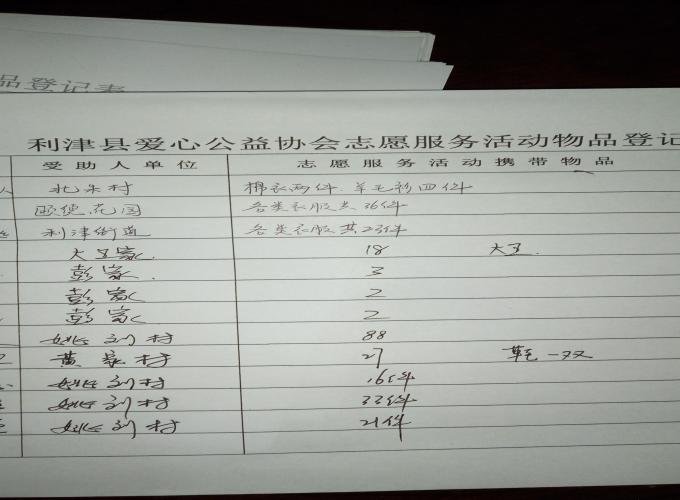 品登记表
利津县爱心公益协会志愿服务活动物品登记
受助人单位 志愿服务活动携带物品
北宋村 棉衣两件 羊毛衫四件
颐德花园 各类衣服共36件
利津街道 各类衣服共23件
大王家 18 大王
彭家 3
彭家 2
彭家 2
姚刘村 88
黄家村 27 一双
姚刘村 16件
姚刘村 33件
姚刘村 21件